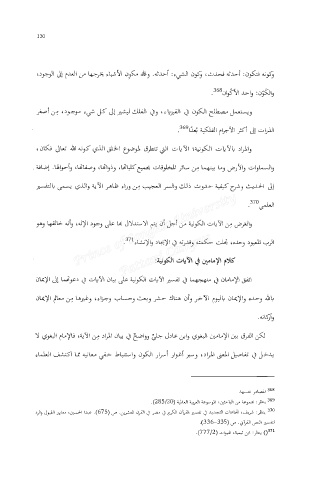 130
وكونه فتكون: أحدثه فحدث، وكون الشيء: أحدثه، والله مكون الأشياء يخرجها من العدم إلى الوجود،
والكَوْن: واحد الأكوان368.
ويستعمل مصطلح الكون في الفيزياء، وفي الفلك ليشير إلى كل شيء موجود، من أصغر
الذرات إلى أكثر الأجرام الفلكية بُعدًا369.
والمراد بالآيات الكونية؛ الآيات التي تتطرق لموضوع الخلق الذي كونه الله تعالى فكان،
والسماوات والأرض وما بينهما من سائر المخلوقات بجميع كلياتها، وذواتها، وصفاتها، وأحوالها. إضافة
إلى الحديث وشرح كيفية حدوث ذلك والسر العجيب من وراء ظاهر الآية والذي يسمى بالتفسير
العلمي370.
والغرض من الآيات الكونية من أجل أن يتم الاستدلال بها على وجود الإله، وأنه خالقها وهو
الرب المعبود وحده، تجلت حكمته وقدرته في الإيجاد والإنشاء371.
كلام الإمامين في الآيات الكونية:
اتفق الإمامان في منهجهما في تفسير الآيات الكونية على بيان الآيات في دعوتهما إلى الإيمان
بالله وحده والإيمان باليوم الآخر وأن هناك حشر وبعث وحساب وجزاء، وغيرها من معالم الإيمان
وأركانه.
لكن الفرق بين الإمامين البغوي وابن عادل جليّ وواضح في بيان المراد من الآية، فالإمام البغوي لا
يدخل في تفاصيل المعنى المراد، وسبر أغوار أسرار الكون واستنباط خفي معانيه مما اكتشف العلماء
368 المصدر نفسه.
369 ينظر: مجموعة من الباحثين، الموسوعة العربية العالمية (285/20).
370 ينظر: شريف، اتجاهات التجديد في تفسير القرآن الكريم في مصر في القرن العشرين، ص (675). عبدا الحسين، معايير القبول والرد
لتفسير النص القرآني، ص (335-336).
371() ينظر: ابن تيمية، النبوات، (777/2).